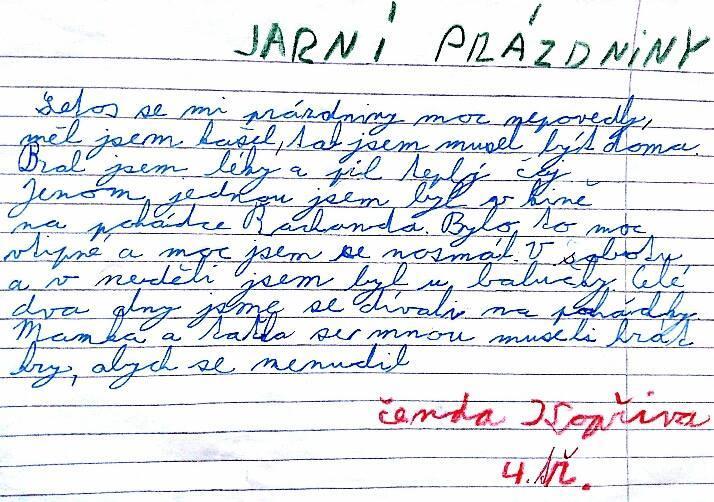 JARNÍ PRÁZDNINY
Letos se mi prázdniny moc nepovedly,
měl jsem kašel, tak jsem musel být doma.
Bral jsem léky a pil teplý čaj
Jenom jednou jsem byl v kině
na pohádce Rachanda. Bylo to moc
vtipné a moc jsem se nasmál. V sobotu
a v neděli jsem byl u babičky. Celé
dva dny jsme se dívali na pohádky.
Mamka a taťka se mnou museli hrát
hry, abych se nenudil
čenda Kopřiva
4. tř.